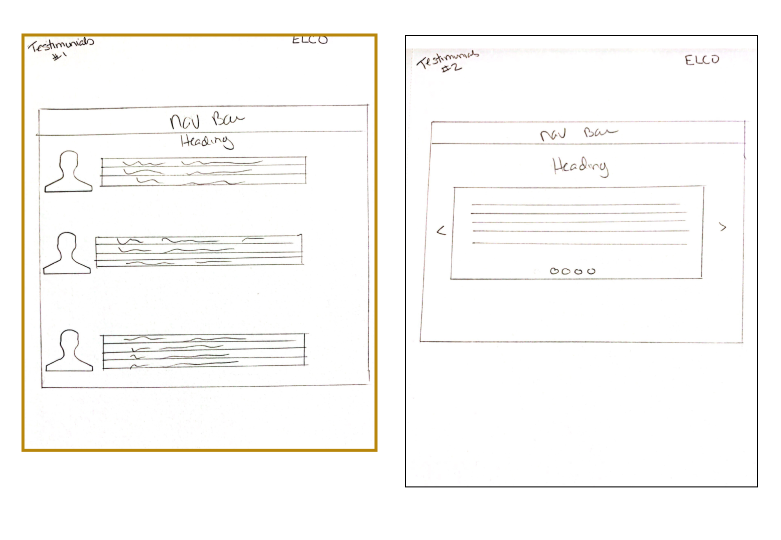 Testimonials
#1
ELCO
Nav Bar
Heading
Testimonials
#2
ELCO
Nav Bar
Heading
< >